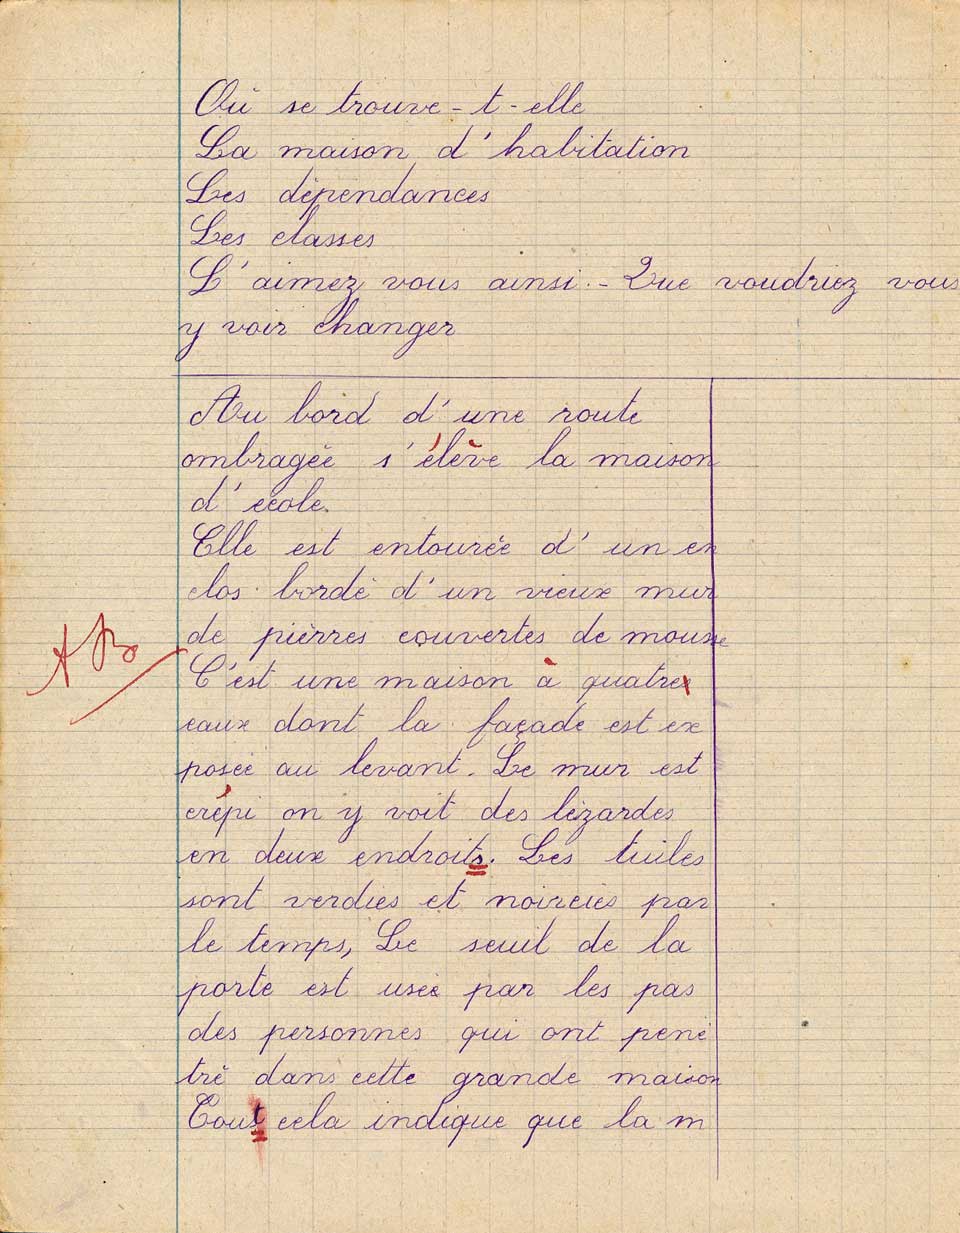 Où se trouve-t-elle
La maison d'habitation
Les dépendances
Les classes
L'aimez vous ainsi.- Que voudriez vous
y voir changer
Au bord d'une route
ombragée s'élève la maison
d'école.
Elle est entourée d'un en
clos bordé d'un vieux mur
de pierres couvertes de mousse
AB
C'est une maison à quatre
eaux dont la façade est ex
posée au levant. Le mur est
crépi on y voit des lézardes
en deux endroits. Les tuiles
sont verdies et noircies par
le temps, Le seuil de la
porte est usée par les pas
des personnes qui ont péné
tré dans cette grande maison
Tout cela indique que la m